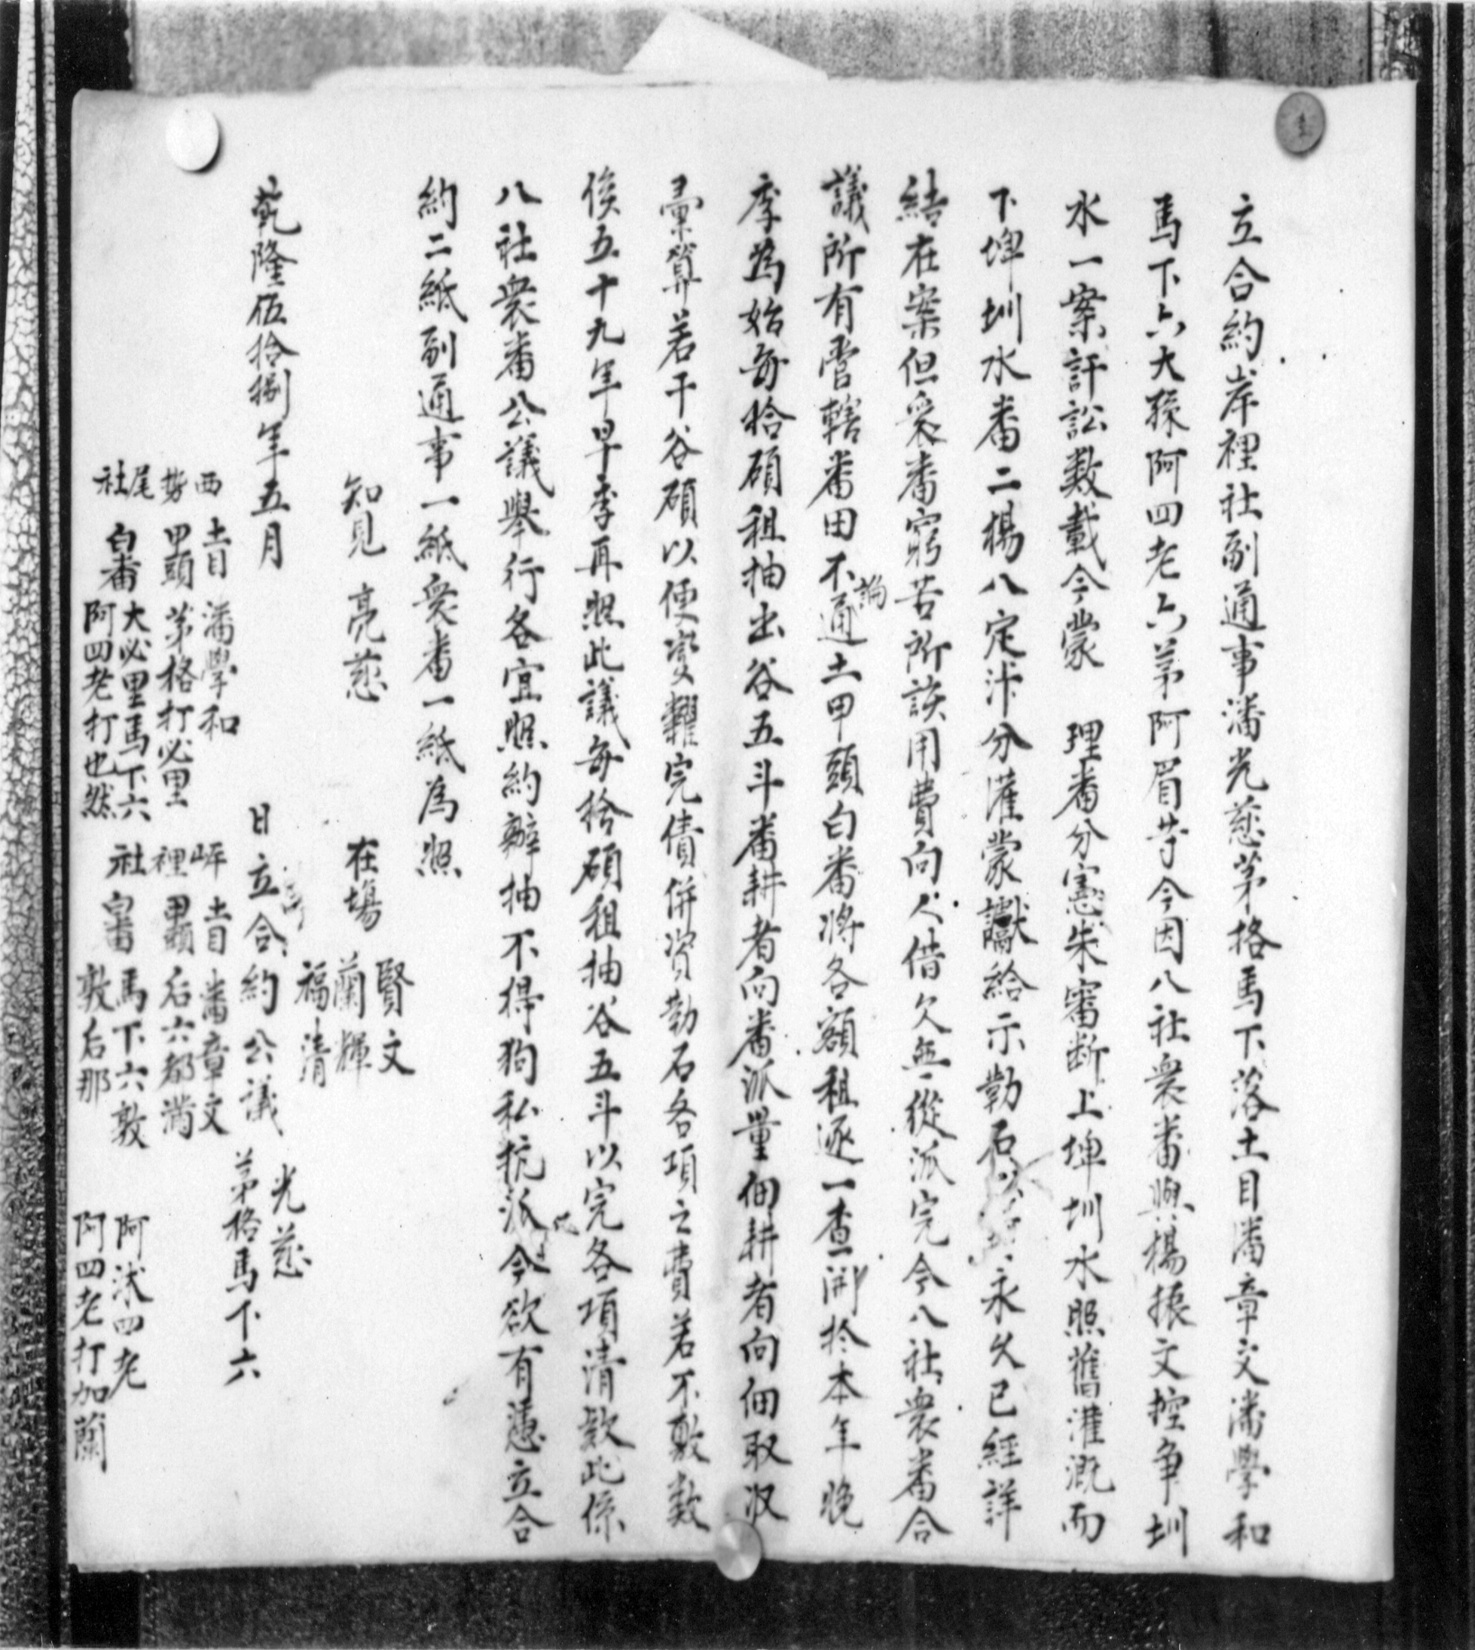 立合約岸裡社副通事潘光慈茅格馬下落土目潘章文潘學和
馬下六大孫阿四老六茅阿眉等今因八社衆番與楊振文控爭圳
水一案訐訟数載今蒙 理番分憲朱審断上埤圳水照舊灌溉而
下埤圳水番二楊八定汴分灌蒙讞給示勒石 永久已經詳
結在案但衆番窮苦所該用費向人借欠無從派完今八社衆番合
議所有管轄番田不論通土甲頭白番將各額租逐一查開於本年晚
季為始每拾碩租抽出谷五斗番耕者向番派量佃耕者向佃取收
彙算若干谷碩以便變糶完債併資勒石各項之費若不敷数
俟五十九年早季再照此議每拾碩租抽谷五斗以完各項清款此係
八社衆番公議舉行各宜照約辦抽不得狥私抗派今欲有憑立合
約二紙副通事一紙衆番一紙為照
知見 亮慈
在塲 賢文
蘭輝
福清
乾隆伍拾捌年五月 日立合約公議 光慈
茅格馬下六
西勢尾社 土目 潘學和
甲頭 茅格打必里
白番 大必里馬下六
阿四老打也然
岸裡社 土目 潘章文
甲頭 后六都滿
白番 馬下六敦
敦后那
阿沐四老
阿四老打加蘭